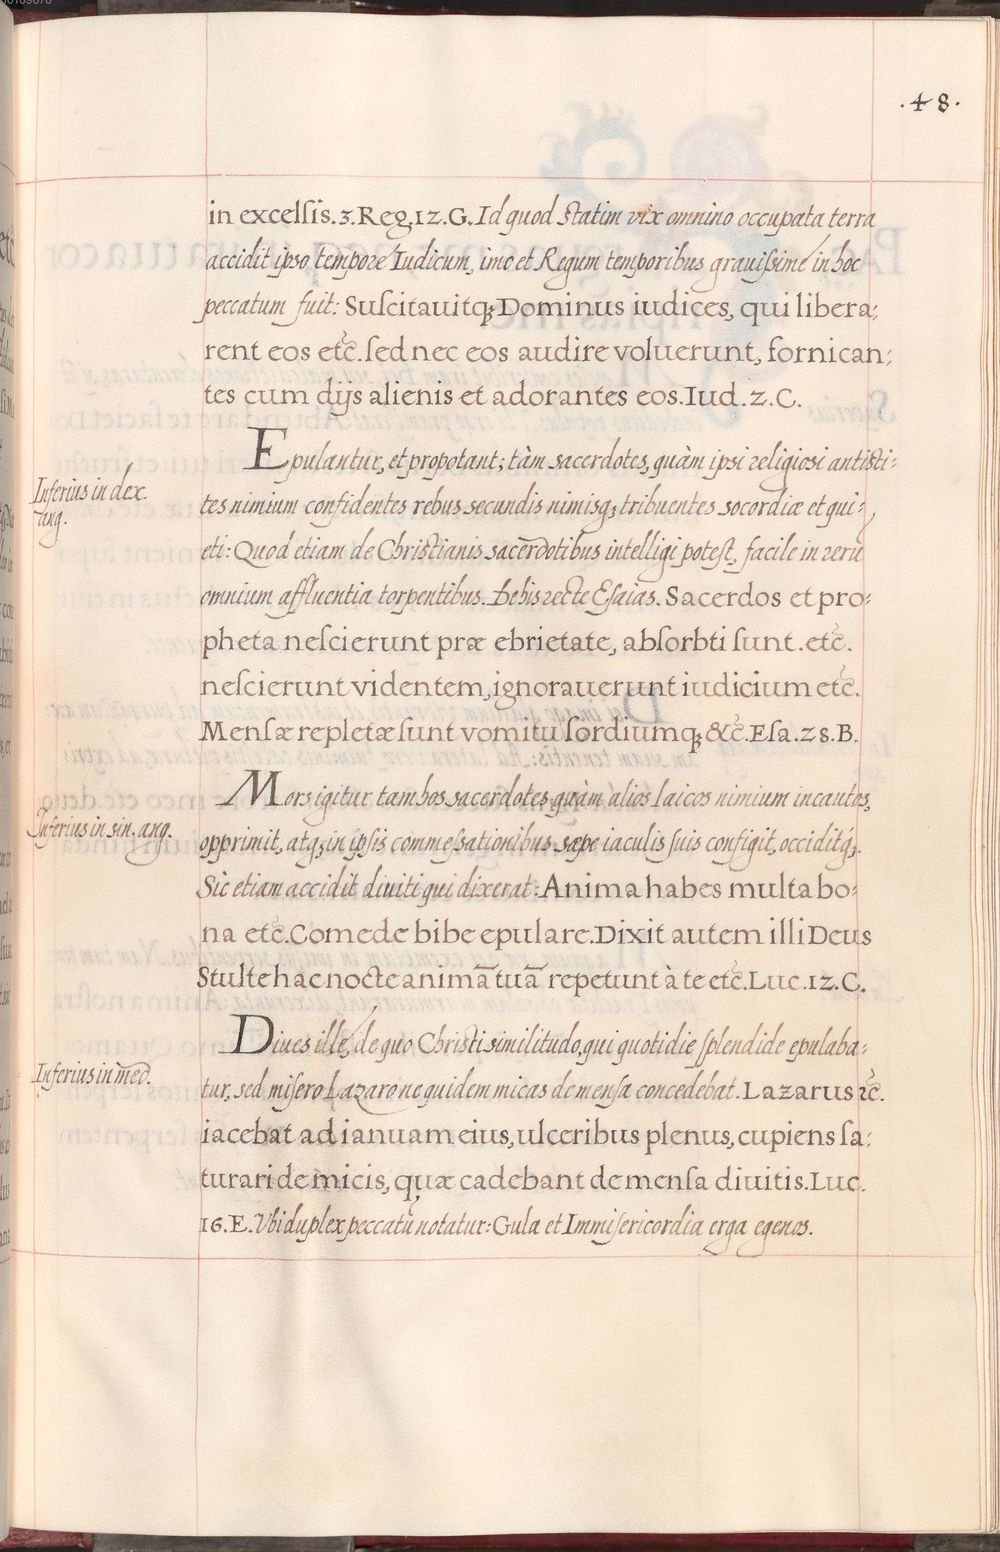 .48.
in excelſis.3.Reg.12.G. Id quod statim vix omnino occupata terra
accidit ipso tempore Iudicum, imo et Regum temporibus grauiſsime in hoc
peccatum fuit: Suſcitauitq; Dominus iudices, qui libera:
rent eos etc̃. ſed nec eos audire voluerunt, fornican:
tes cum dijs alienis et adorantes eos. Iud.2.C.
Inferius in dex.
ang.
Epulantur, et propotant; tàm sacerdotes, quàm ipsi religiosi antisti:
tes nimium confidentes rebus secundis nimisq; tribuentes socordiæ et qui:
eti: Quod etiam de Christianis sacer̄dotibus intelligi poteſt, facile in rerū
omnium affluentia torpentibus. De his recte Eſaias. Sacerdos et pro:
pheta neſcierunt præ ebrietate, abſorbti ſunt. etc̃.
neſcierunt videntem, ignorauerunt iudicium etc̃.
Menſæ repletæ ſunt vomitu ſordiumq; &c̃. Eſa.28.B.
Inferius in sin. ang.
Mors igitur tam hos sacerdotes quàm alios laicos nimium incautos,
opprimit, atq; in ipſis commeſsationibus sæpe iaculis ſuis configit, occiditq́;.
Sic etiam accidit diuiti qui dixerat: Anima habes multa bo:
na etc̃. Comede bibe epulare. Dixit autem illi Deus
Stulte hac nocte animā tuā repetunt à te etc̃. Luc.12.C.
Inferius in med̄.
Diues ille, de quo Christi similitudo, qui quotidie ſplendide epulaba:
tur, sed miſero Lazaro ne quidem micas de menſa concedebat. Lazarus ꝛc̃.
iacebat ad ianuam eius, ulceribus plenus, cupiens ſa:
turari de micis, quæ cadebant de menſa diuitis. Luc.
16.E. Vbi duplex peccatū notatur: Gula et Immiſericordia erga egenos.